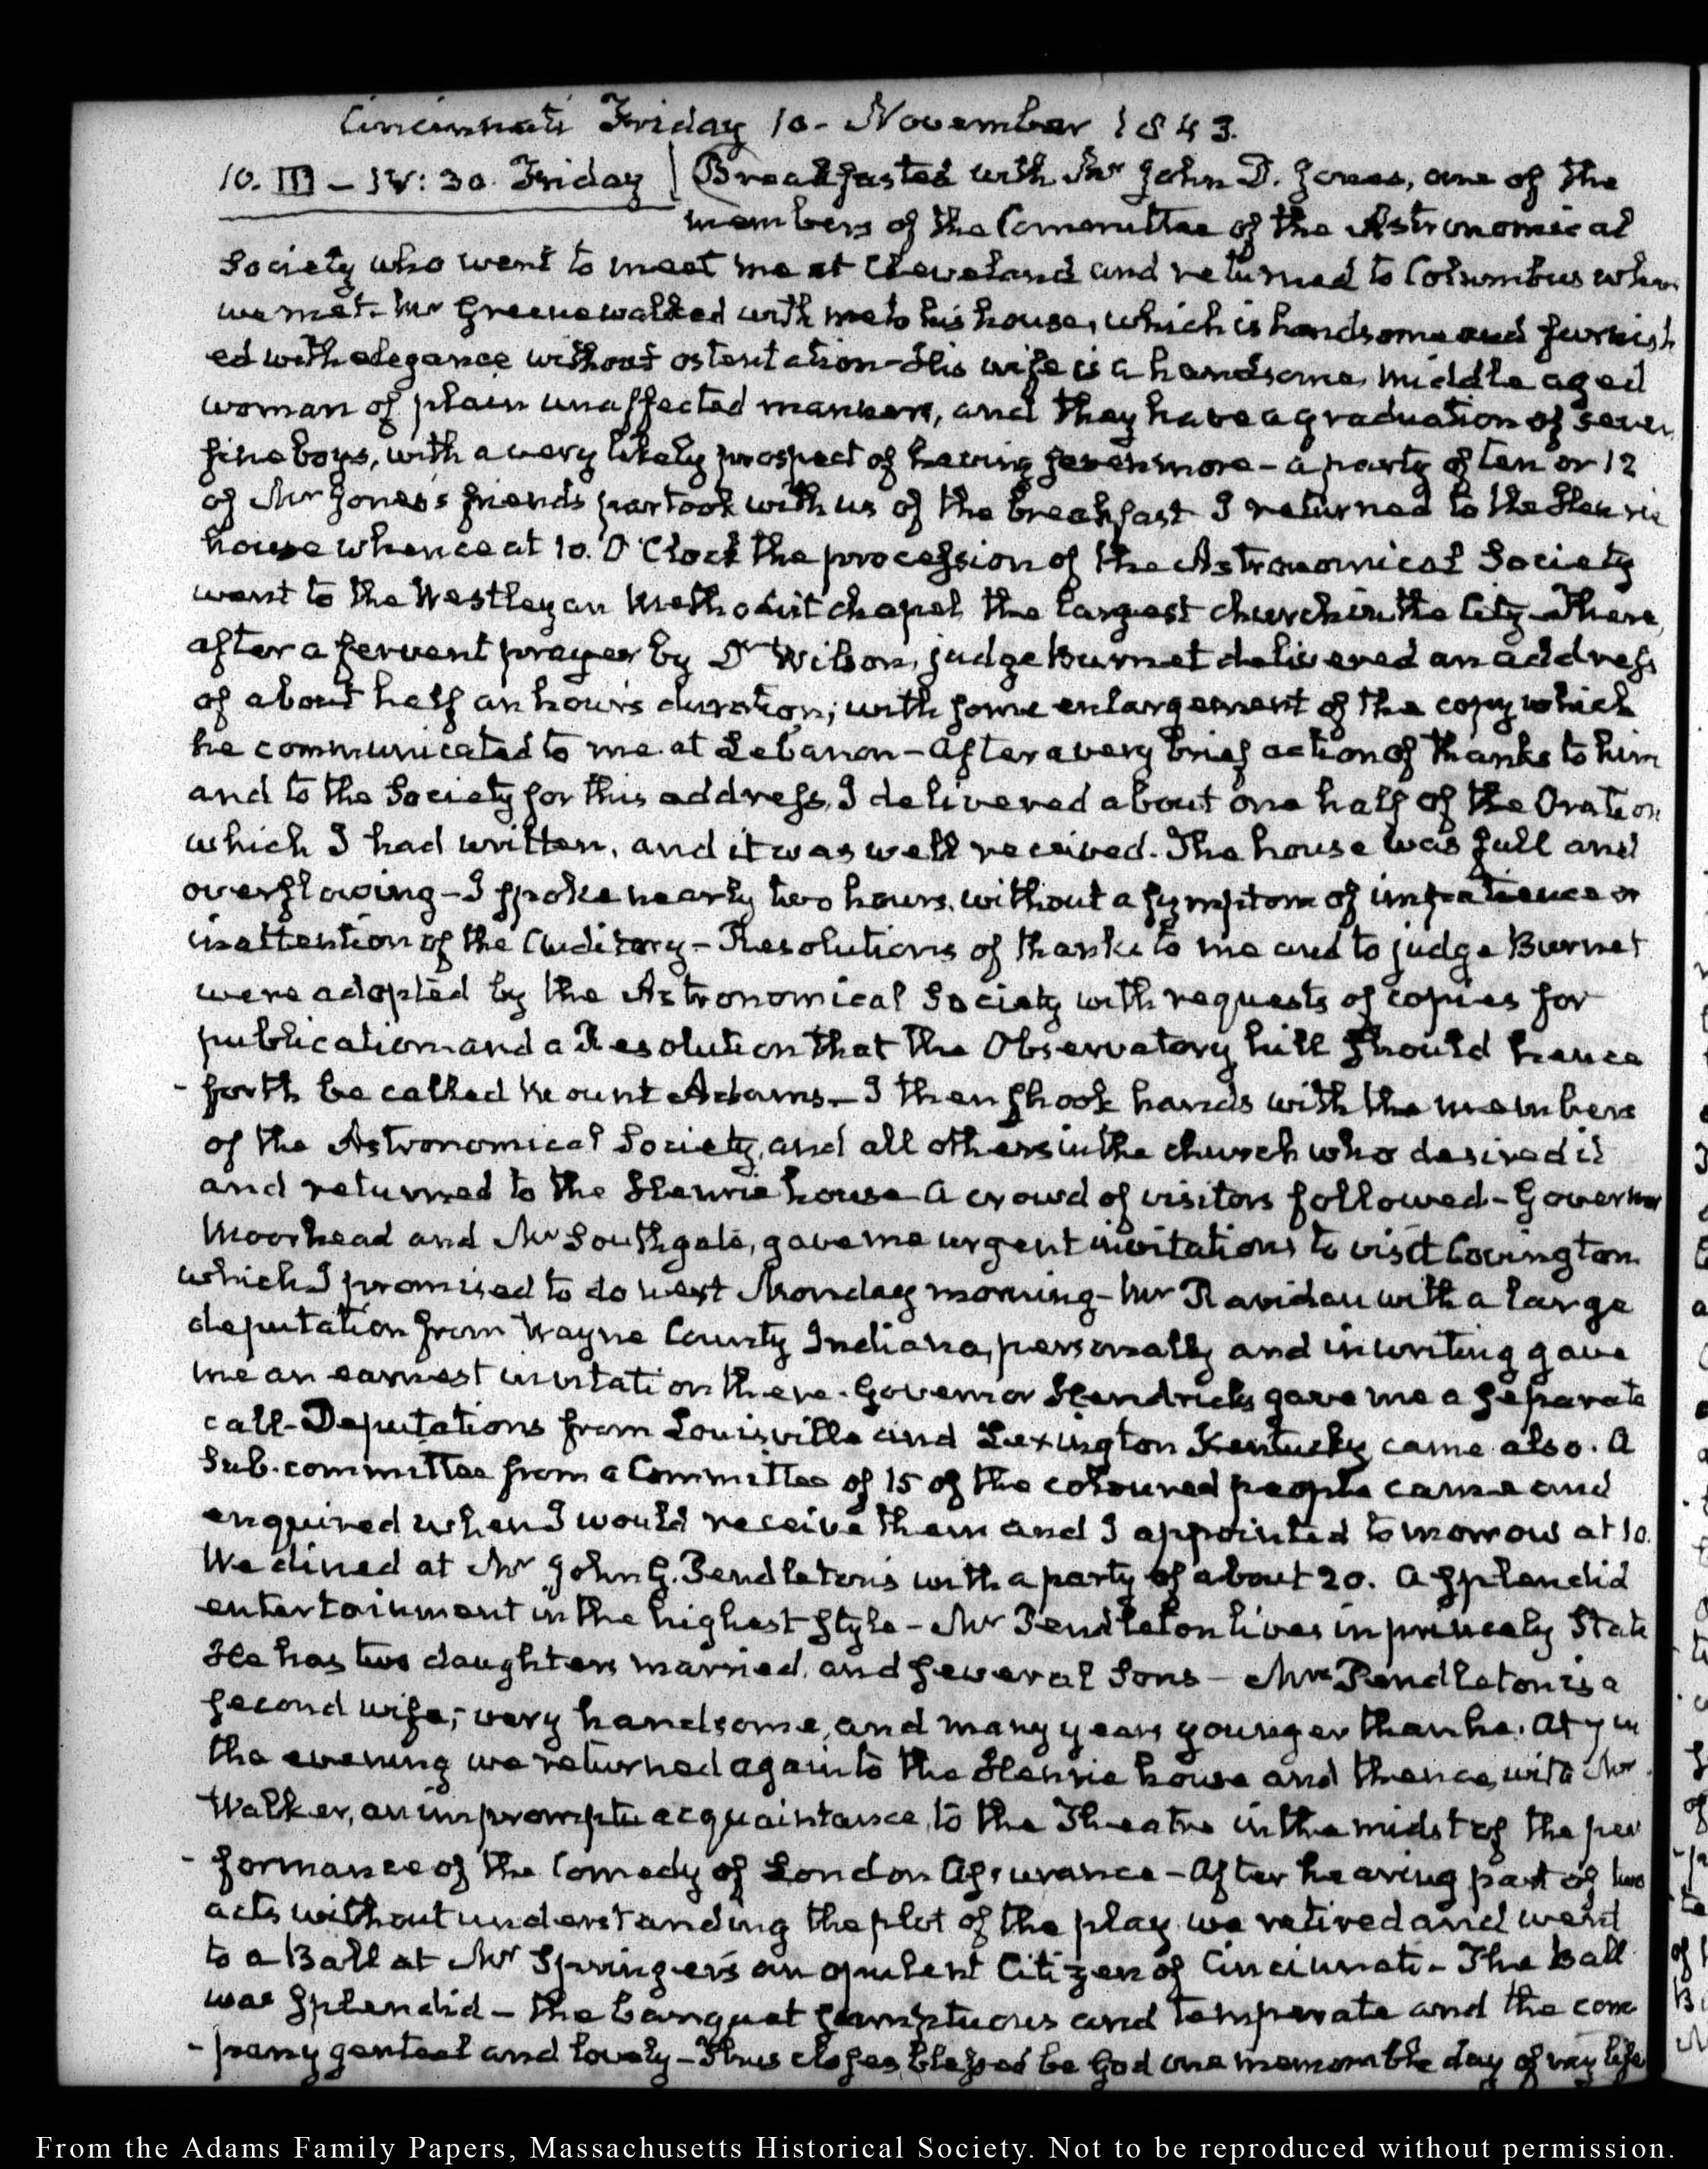 Cincinnati Friday 10. November 1843.
10. III. – IV: 30. Friday | Breakfasted with Mr John D. Jones, one of the
members of the Committee of the Astronomical
Society who went to meet me at Cleveland and returned to Columbus where
we met. Mr Greene walked with me to his house, which is handsome and furnish
ed with elegance without ostentation – His wife is a handsome, middle aged
woman of plain unaffected manners, and they have a graduation of seven
fine boys, with a very likely prospect of having seven more – a party of ten or 12
of Mr Jones's friends partook with us of the breakfast I returned to the Henrie
house whence at 10. O'Clock the procession of the Astronomical Society
went to the Westleyan Methodist chapel the largest church in the City – There,
after a fervent prayer by Dr Wilson, judge Burnet delivered an address
of about half an hour's duration; with some enlargement of the copy which
he communicated to me at Lebanon – After a very brief action of thanks to him
and to the Society for this address, I delivered about one half of the Oration
which I had written, and it was well received. The house was full and
overflowing – I spoke nearly two hours, without a symptom of impatience or
inattention of the Auditory – Resolutions of thanks to me and to judge Burnet
were adopted by the Astronomical Society with requests of copies for
publication and a Resolution that the Observatory hill should hence
- forth be called Mount Adams – I then shook hands with the members
of the Astronomical Society, and all others in the church who desired it
and returned to the Henrie house – A crowd of visitors followed – Governor
Moorhead and Mr Southgate, gave me urgent invitations to visit Covington
which I promised to do next Monday morning – Mr Ravidau with a large
deputation from Wayne County Indiana, personally and in writing gave
me an earnest invitation there. Governor Hendricks gave me a separate
call – Deputations from Louisville and Lexington Kentucky came also. A
Sub-committee from a Committee of 15 of the coloured people came and
enquired when I would receive them and I appointed tomorrow at 10.
We dined at Mr John G. Pendleton's with a party of about 20. A splendid
entertainment in the highest style – Mr Pendleton lives in princely State
He has two daughters married, and several Sons – Mrs Pendleton is a
second wife; very handsome, and many years younger than he. At 7 in
the evening we returned again to the Henrie house and thence, with Mr
Walker, an impromptu acquaintance, to the Theatre in the midst of the per
- formance of the Comedy of London Assurance – After hearing part of two
acts without understanding the plot of the play we retired and went
to a Ball at Mr Springer's an opulent Citizen of Cincinnati – The Ball
was splendid – the banquet sumptuous and temperate and the com
- pany genteel and lovely – Thus closes, blessed be God one memorable day of my life
From the Adams Family Papers, Massachusetts Historical Society. Not to be reproduced without permission.